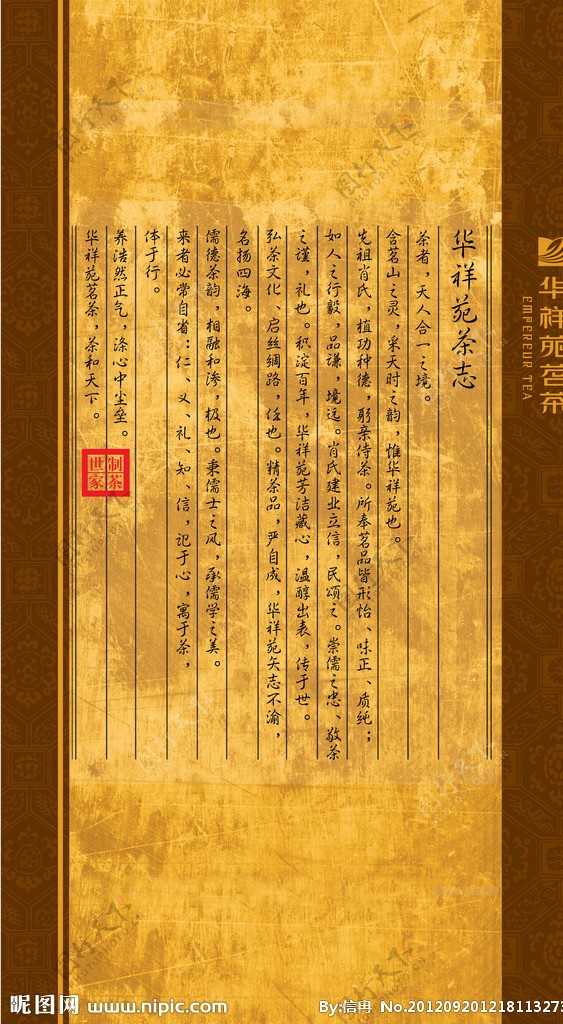 华祥苑茶志
茶者，天人合一之境。
含茗山之灵，采天时之韵，惟华祥苑也。
先祖肖氏，植功种德，躬亲侍茶。所奉茗品皆形怡、味正、质纯；
如人之行毅，品谦，境远。肖氏建业立信，民颂之。崇儒之忠、敬茶
之谨，礼也。积淀百年，华祥苑芳洁藏心，温醇出表，传于世。
弘茶文化、启丝绸路，任也。精茶品，严自成，华祥苑矢志不渝，
名扬四海。
儒德茶韵，相融和渗，极也。秉儒士之风，承儒学之美。
来者必常自省：仁、义、礼、知、信，记于心，寓于茶，
体于行。
养浩然正气，涤心中尘垒。
华祥苑茗茶，茶和天下。
制茶
世家
华祥苑茗茶
EMPEREUR TEA
昵图网 www.nipic.com
By:信冉 No.201209201218113273